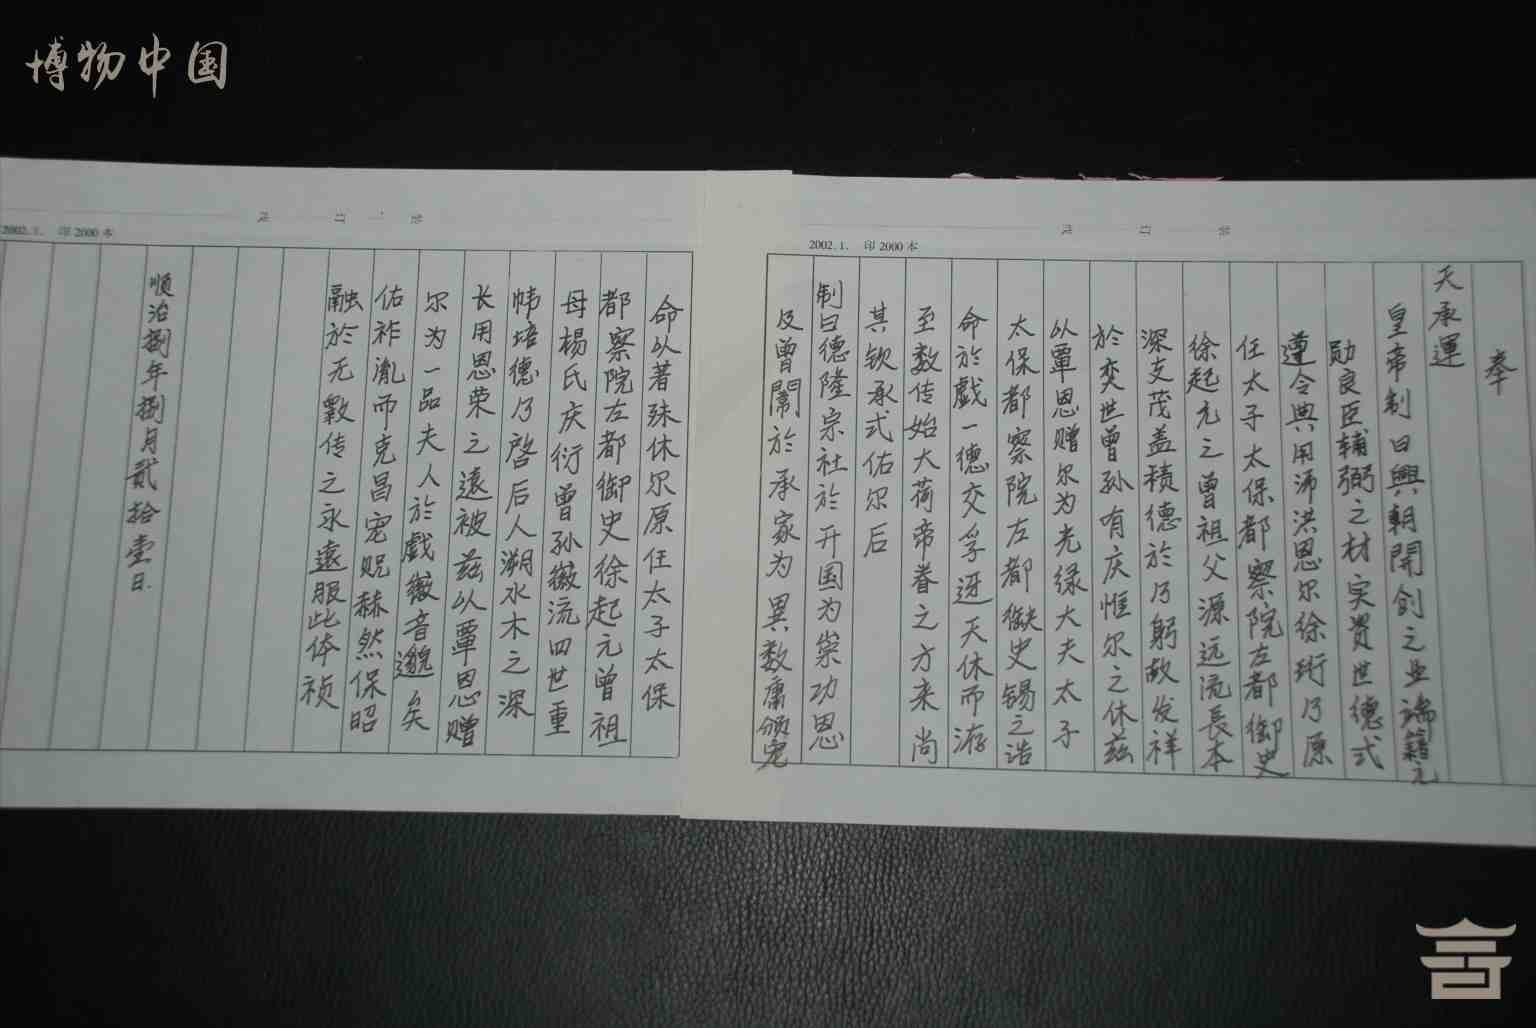 博物中国
2002.1. 印2000本
奉
天承運
皇帝制曰興朝開創之业端藉元
勋良臣輔弼之材实贾世德式
遵令典用沛洪恩尔徐珩乃原
任太子太保都察院左都御史
徐起元之曾祖父源远流長本
深支茂盖積德於乃躬故发祥
於奕世曾孙有庆惟尔之休兹
以覃恩赠尔为光禄大夫太子
太保都察院左都御史锡之诰
命於戲一德交孚迓天休而游
至数传始大荷帝眷之方来尚
其钦承式佑尔后
制曰德隆宗社於开国为崇功恩
及曾闈於承家为異数庸颁宠
2002.1. 印2000本
命以著殊休尔原任太子太保
都察院左都御史徐起元曾祖
母楊氏庆衍曾孙徽流四世重
帏培德乃啓后人溯水木之深
长用恩荣之遠被兹以覃恩赠
尔为一品夫人於戲徽音邈矣
佑祚胤而克昌宠贶赫然保昭
融於无斁传之永遠服此体祯
順治捌年捌月贰拾壹日.